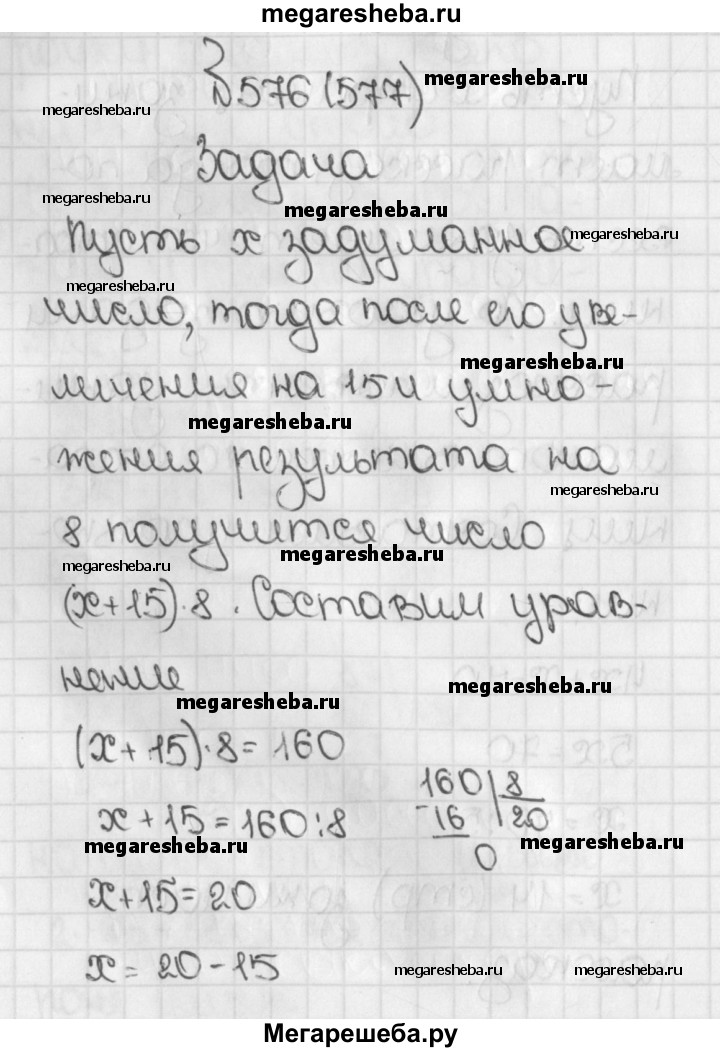 megaresheba.ru
№576 (577)
megaresheba.ru
megaresheba.ru
Задача
megaresheba.ru
megaresheba.ru
Пусть x задуманное
megaresheba.ru
megaresheba.ru
число, тогда после его уве-
megaresheba.ru
личения на 15 и умно-
megaresheba.ru
жения результата на
megaresheba.ru
8 получится число
megaresheba.ru
megaresheba.ru
(x+15)·8. Составим урав-
нение
megaresheba.ru
megaresheba.ru
(x+15)·8=160
x+15=160:8
160 8
-16 20
0
megaresheba.ru
megaresheba.ru
x+15=20
x=20-15
megaresheba.ru
megaresheba.ru
Мегарешеба.ру